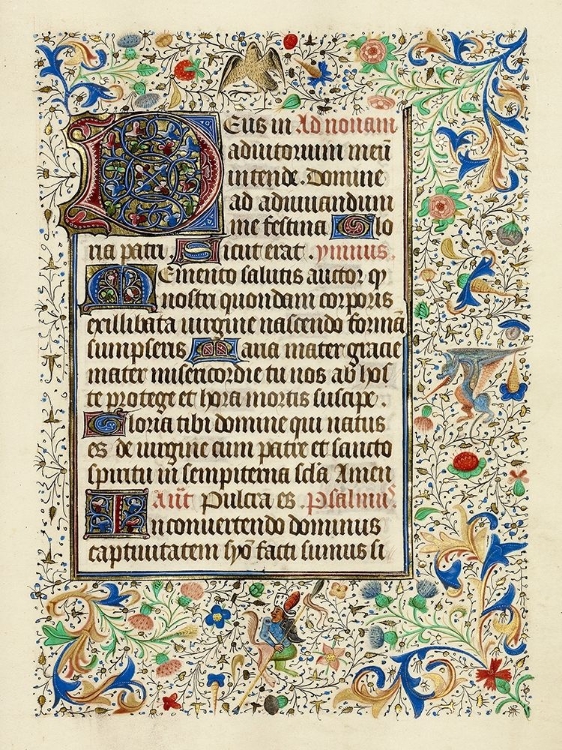 Deus in Ad nonam
adiutorium meū
intende. Domine
ad adiuuandum
me festina Glo
ria patri. Sicut erat. ymnus.
Memento salutis auctor qͥ
nostri quondam corporis
ex illibata uirgine nascendo formā
sumpseris Maria mater gracie
mater misericordie tu nos ab hos
te protege et hora mortis suscipe.
Gloria tibi domine qui natus
es de uirgine cum patre et sancto
spiritu in sempiterna sc̄la Amen
Añt Pulcra es. Psalmus
In conuertendo dominus
captiuitatem syon facti sumus si